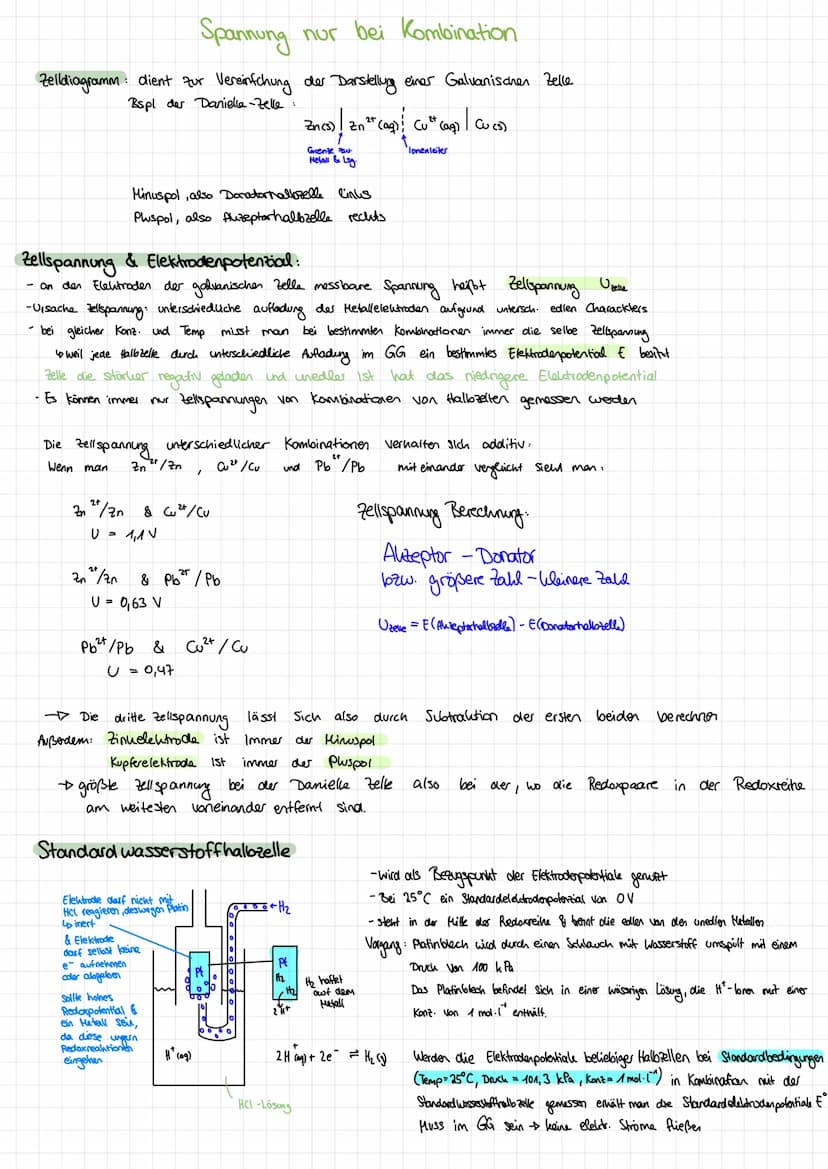 Spannung nur bei Kombination
Zelldiagramm: dient zur Vereinfchung der Darstellung einer Galvanischen Zelle
Bspl der Daniella-Zelle:
Zn(s) | Zn²⁺(aq) ¦ Cu²⁺(aq) | Cu(s)
Grenze zw. Metall & Lsg.
Ionenleiter
Minuspol, also Donatorhalbzelle links
Pluspol, also Akzeptorhalbzelle rechts
Zellspannung & Elektrodenpotenzial:
- an den Elektroden der galvanischen Zelle messbare Spannung heißt Zellspannung U Zelle
- Ursache Zellspannung: unterschiedliche aufladung der Metallelektroden aufgrund untersch. edlen Charackters
- bei gleicher Konz. und Temp misst man bei bestimmten Kombinationen immer die selbe Zellspannung
↳ weil jede Halbzelle durch unterschiedliche Aufladung im GG ein bestimmtes Elektrodenpotential E besitzt
Zelle die stärker negativ geladen und unedler ist hat das niedrigere Elektrodenpotential
- Es können immer nur Zellspannungen von Kombinationen von Halbzellen gemessen werden
Die Zellspannung unterschiedlicher Kombinationen verhalten sich additiv.
Wenn man Zn²⁺/Zn, Cu²⁺/Cu und Pb²⁺/Pb miteinander vergleicht sieht man:
Zn²⁺/Zn & Cu²⁺/Cu
U = 1,1 V
Zn²⁺/Zn & Pb²⁺/Pb
U = 0,63 V
Pb²⁺/Pb & Cu²⁺/Cu
U = 0,47
Zellspannung Berechnung:
Akzeptor - Donator
bzw. größere Zahl - kleinere Zahl
U Zelle = E(Akzeptorhalbzelle) - E(Donatorhalbzelle)
→ Die dritte Zellspannung lässt sich also durch Subtraktion der ersten beiden berechnen
Außerdem: Zinkelektrode ist immer der Minuspol
Kupferelektrode ist immer der Pluspol
→ größte Zellspannung bei der Danielle Zelle also bei der, wo die Redoxpaare in der Redoxreihe
am weitesten voneinander entfernt sind.
Standardwasserstoffhalbzelle
Elektrode darf nicht mit
HCl reagieren, deswegen Platin
↳ inert
& Elektrode
darf selbst keine
e⁻ aufnehmen
oder abgeben
sollte hohes
Redoxpotential &
ein Metall sein,
da diese ungern
Redoxreaktionen
eingehen
← H₂
Pt
H⁺(aq)
HCl-Lösung
Pt
H₂
H₂
2H⁺
H₂ haftet
auf dem
Metall
2H⁺(aq) + 2e⁻ ⇌ H₂(g)
- wird als Bezugspunkt der Elektrodenpotentiale genutzt
- Bei 25°C ein Standardelektrodenpotenzial von 0V
- steht in der Mitte der Redoxreihe & trennt die edlen von den unedlen Metallen
Vorgang: Platinblech wird durch einen Schlauch mit Wasserstoff umspült mit einem
Druck von 100 kPa
Das Platinblech befindet sich in einer wässrigen Lösung, die H⁺-Ionen mit einer
Konz. von 1 mol·l⁻¹ enthält.
Werden die Elektrodenpotentiale beliebiger Halbzellen bei Standardbedingungen
(Temp=25°C, Druck = 101,3 kPa, Konz = 1 mol·l⁻¹) in Kombination mit der
Standardwasserstoffhalbzelle gemessen erhält man die Standardelektrodenpotentiale E°
Muss im GG sein → keine elektr. Ströme fließen